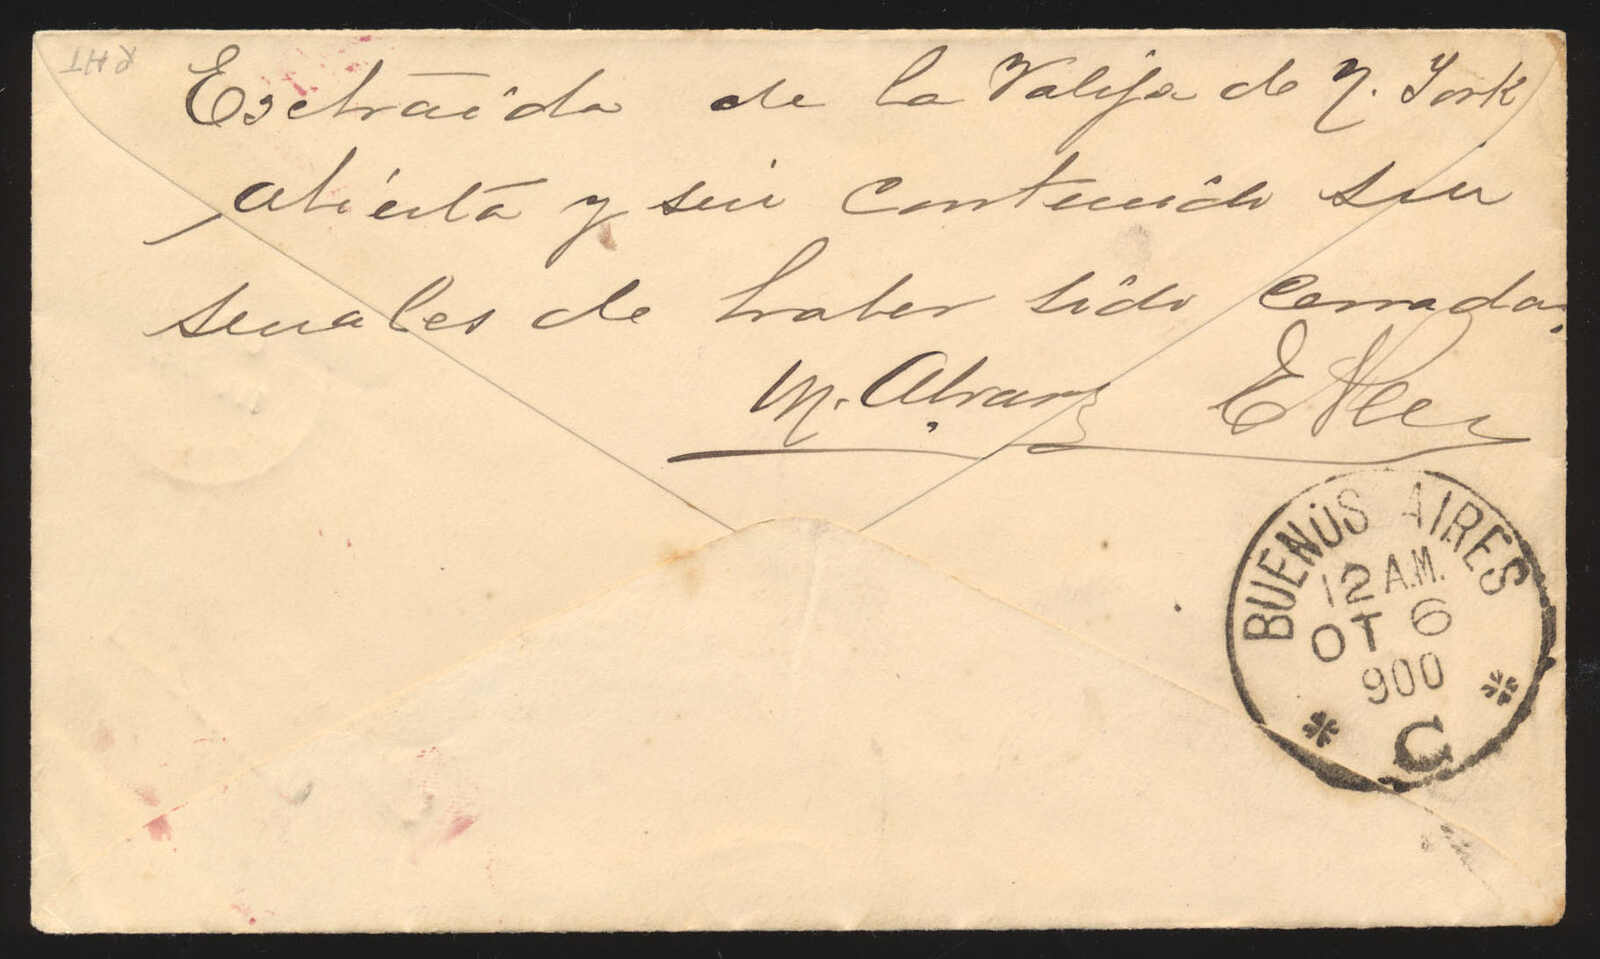 Esctraida de la Valija de N. York
abierta y sin contenido sin
senales de haber sido cerrada.
M. Alvarez
BUENOS AIRES
12 A.M.
OT 6
900
C